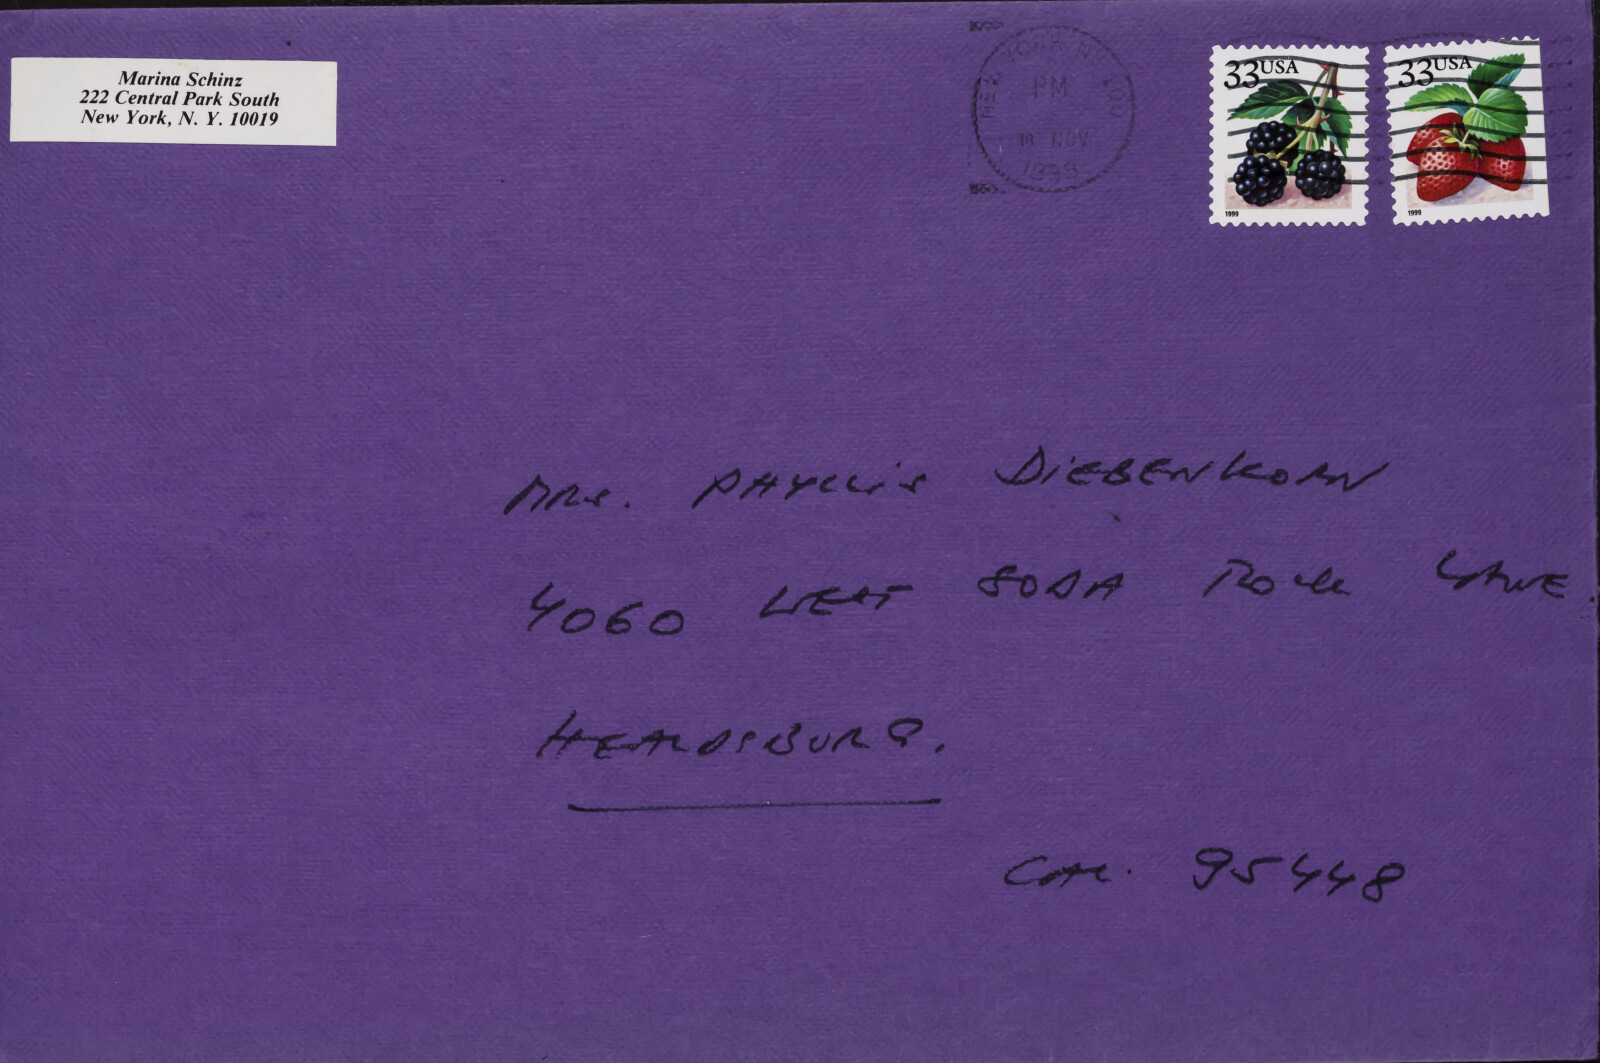 Marina Schinz
222 Central Park South
New York, N. Y. 10019
NEW YORK NY 100
PM
NOV
1999
33 USA
1999
33 USA
1999
MRS. PHYLLIS DIEBENKORN
4060 WEST SODA ROCK LANE.
HEALDSBURG.
CAL. 95448